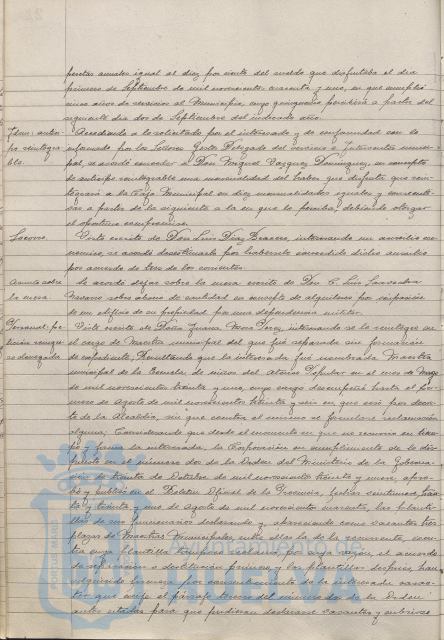 pesetas anuales igual al diez por ciento del sueldo que disfrutaba el dia
primero de Septiembre de mil novecientos cuarenta y uno, en que cumplió
cinco años de servicios al Municipio, cuyo quinquenio percibirá a partir del
siguiente dia dos de Septiembre del indicado año.
Idem: antici-
po reintegra-
ble.
Accediendo a lo solicitado por el interesado y de conformidad con lo
informado por los Señores Gestor Delegado del servicio e Interventor munici-
pal, se acordó conceder a Don Miguel Vazquez Dominguez, en concepto
de anticipo reintegrable una mensualidad del haber que disfruta que rein-
tegrará a la Caja Municipal en diez mensualidades iguales y consecuti-
vas a partir de la siguiente a la en que lo perciba, debiendo otorgar
el oportuno compromiso.
Socorro.
Visto escrito de Don Luis Diaz, interesando un auxilio eco-
nomico, se acordó desestimarlo por haberle concedido dicho auxilio
por acuerdo de tres de los corrientes.
Asunto sobre
la mesa
Se acordó dejar sobre la mesa escrito de Don C. Luis
Navarro sobre abono de cantidad en concepto de alquileres por ocupación
de un edificio de su propiedad por una dependencia militar.
Personal: pe-
tición reingre-
so denegada.
Visto escrito de Doña Juana Mora, interesando se la reintegre en
el cargo de Maestra municipal del que fué separada sin formación
de expediente; Resultando que la interesada fué nombrada Maestra
municipal de la Escuela de niños del Ateneo Popular en el mes de Mayo
de mil novecientos treinta y uno, cuyo cargo desempeñó hasta el pri-
mero de Agosto de mil novecientos treinta y seis en que cesó por decre-
to de la Alcaldia, sin que contra el mismo se formulase reclamación
alguna; Considerando que desde el momento en que no recurrió en tiem-
po y forma la interesada, la Corporación en cumplimiento de lo dis-
puesto en el numero dos de la Orden del Ministerio de la Goberna-
ción de treinta de Octubre de mil novecientos treinta y nueve, apro-
bó y publicó en el Boletin Oficial de la Provincia, fechas
y treinta y uno de Agosto de mil novecientos cuarenta, las planti-
llas de sus funcionarios declarando y apareciendo como vacantes tres
plazas de Maestras Municipales, entre ellas la de la recurrente, con-
tra cuya plantilla tampoco reclamó, por cuya razón, el acuerdo
de separación o destitución primero y las plantillas después, han
adquirido firmeza por consentimiento de la interesada
que exige el párrafo tercero del numero dos de la Orden
antes citada para que pudieran declararse vacantes y cubrirse
PORTUS MAGNUS
Ayuntamiento de